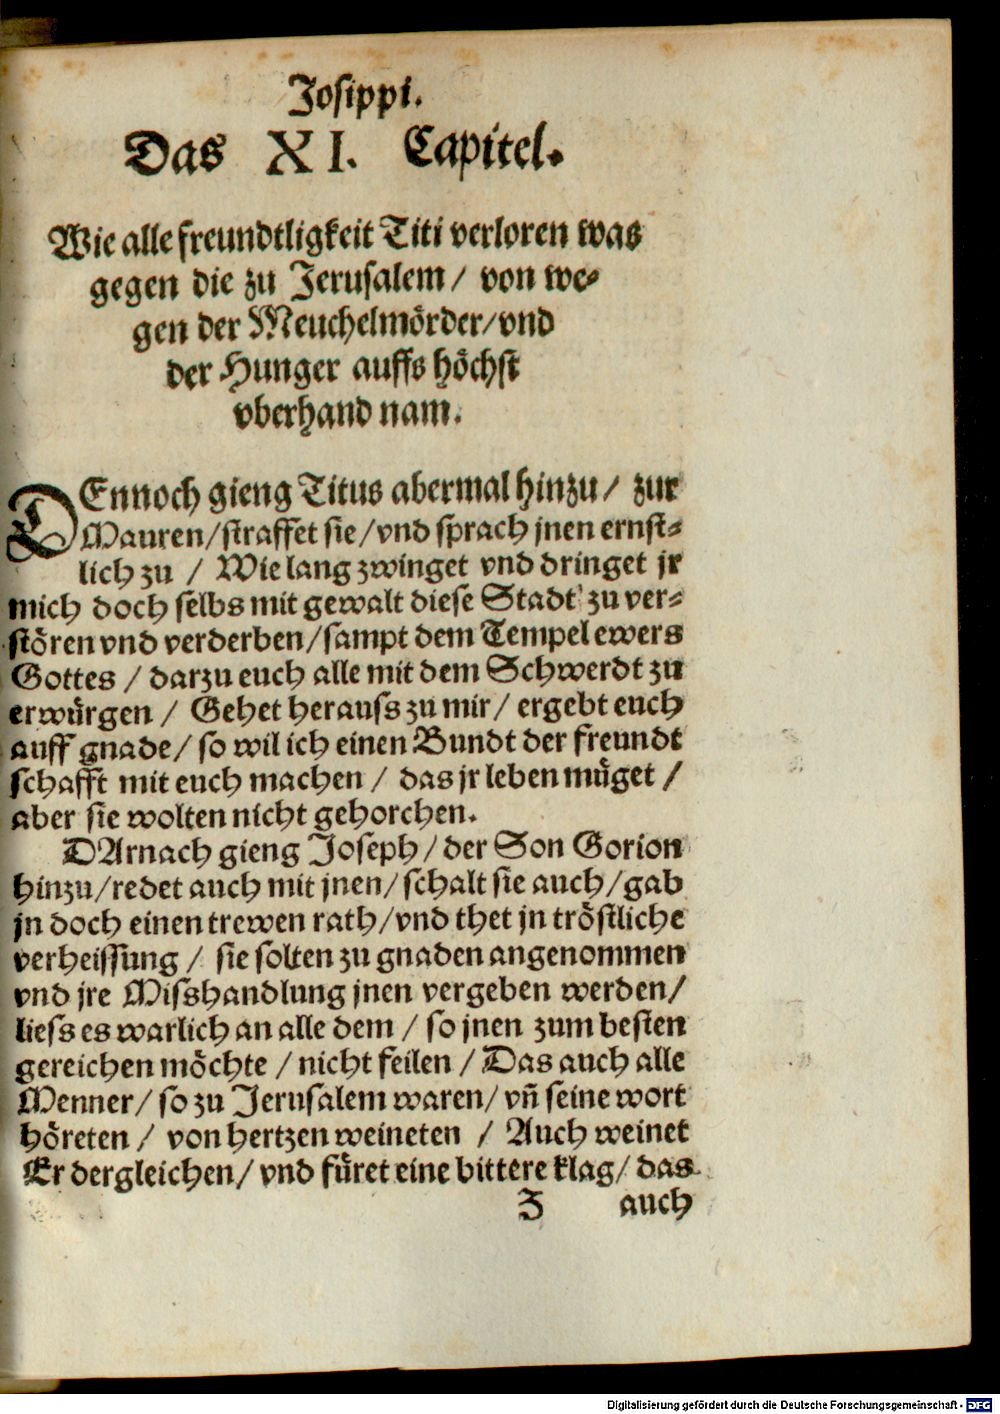 Josippi.
Das XI. Capitel.
Wie alle freundtligkeit Titi verloren was
gegen die zu Jerusalem / von we-
gen der Meuchelmörder/vnd
der Hunger auffs höchst
vberhand nam.
DEnnoch gieng Titus abermal hinzu / zur
Mauren/straffet sie/vnd sprach jnen ernst-
lich zu / Wie lang zwinget vnd dringet jr
mich doch selbs mit gewalt diese Stadt zu ver-
stören vnd verderben/sampt dem Tempel ewers
Gottes / darzu euch alle mit dem Schwerdt zu
erwürgen / Gehet herauss zu mir/ ergebt euch
auff gnade/ so wil ich einen Bundt der freundt
schafft mit euch machen / das jr leben müget /
aber sie wolten nicht gehorchen.
DArnach gieng Joseph/der Son Gorion
hinzu/redet auch mit jnen/schalt sie auch/gab
jn doch einen trewen rath/vnd thet jn tröstliche
verheissung / sie solten zu gnaden angenommen
vnd jre Misshandlung jnen vergeben werden/
liess es warlich an alle dem / so jnen zum besten
gereichen möchte / nicht feilen / Das auch alle
Menner/ so zu Jerusalem waren/ vñ seine wort
höreten / von hertzen weineten / Auch weinet
Er dergleichen/ vnd füret eine bittere klag/ das
Z auch
Digitalisierung gefördert durch die Deutsche Forschungsgemeinschaft - DFG